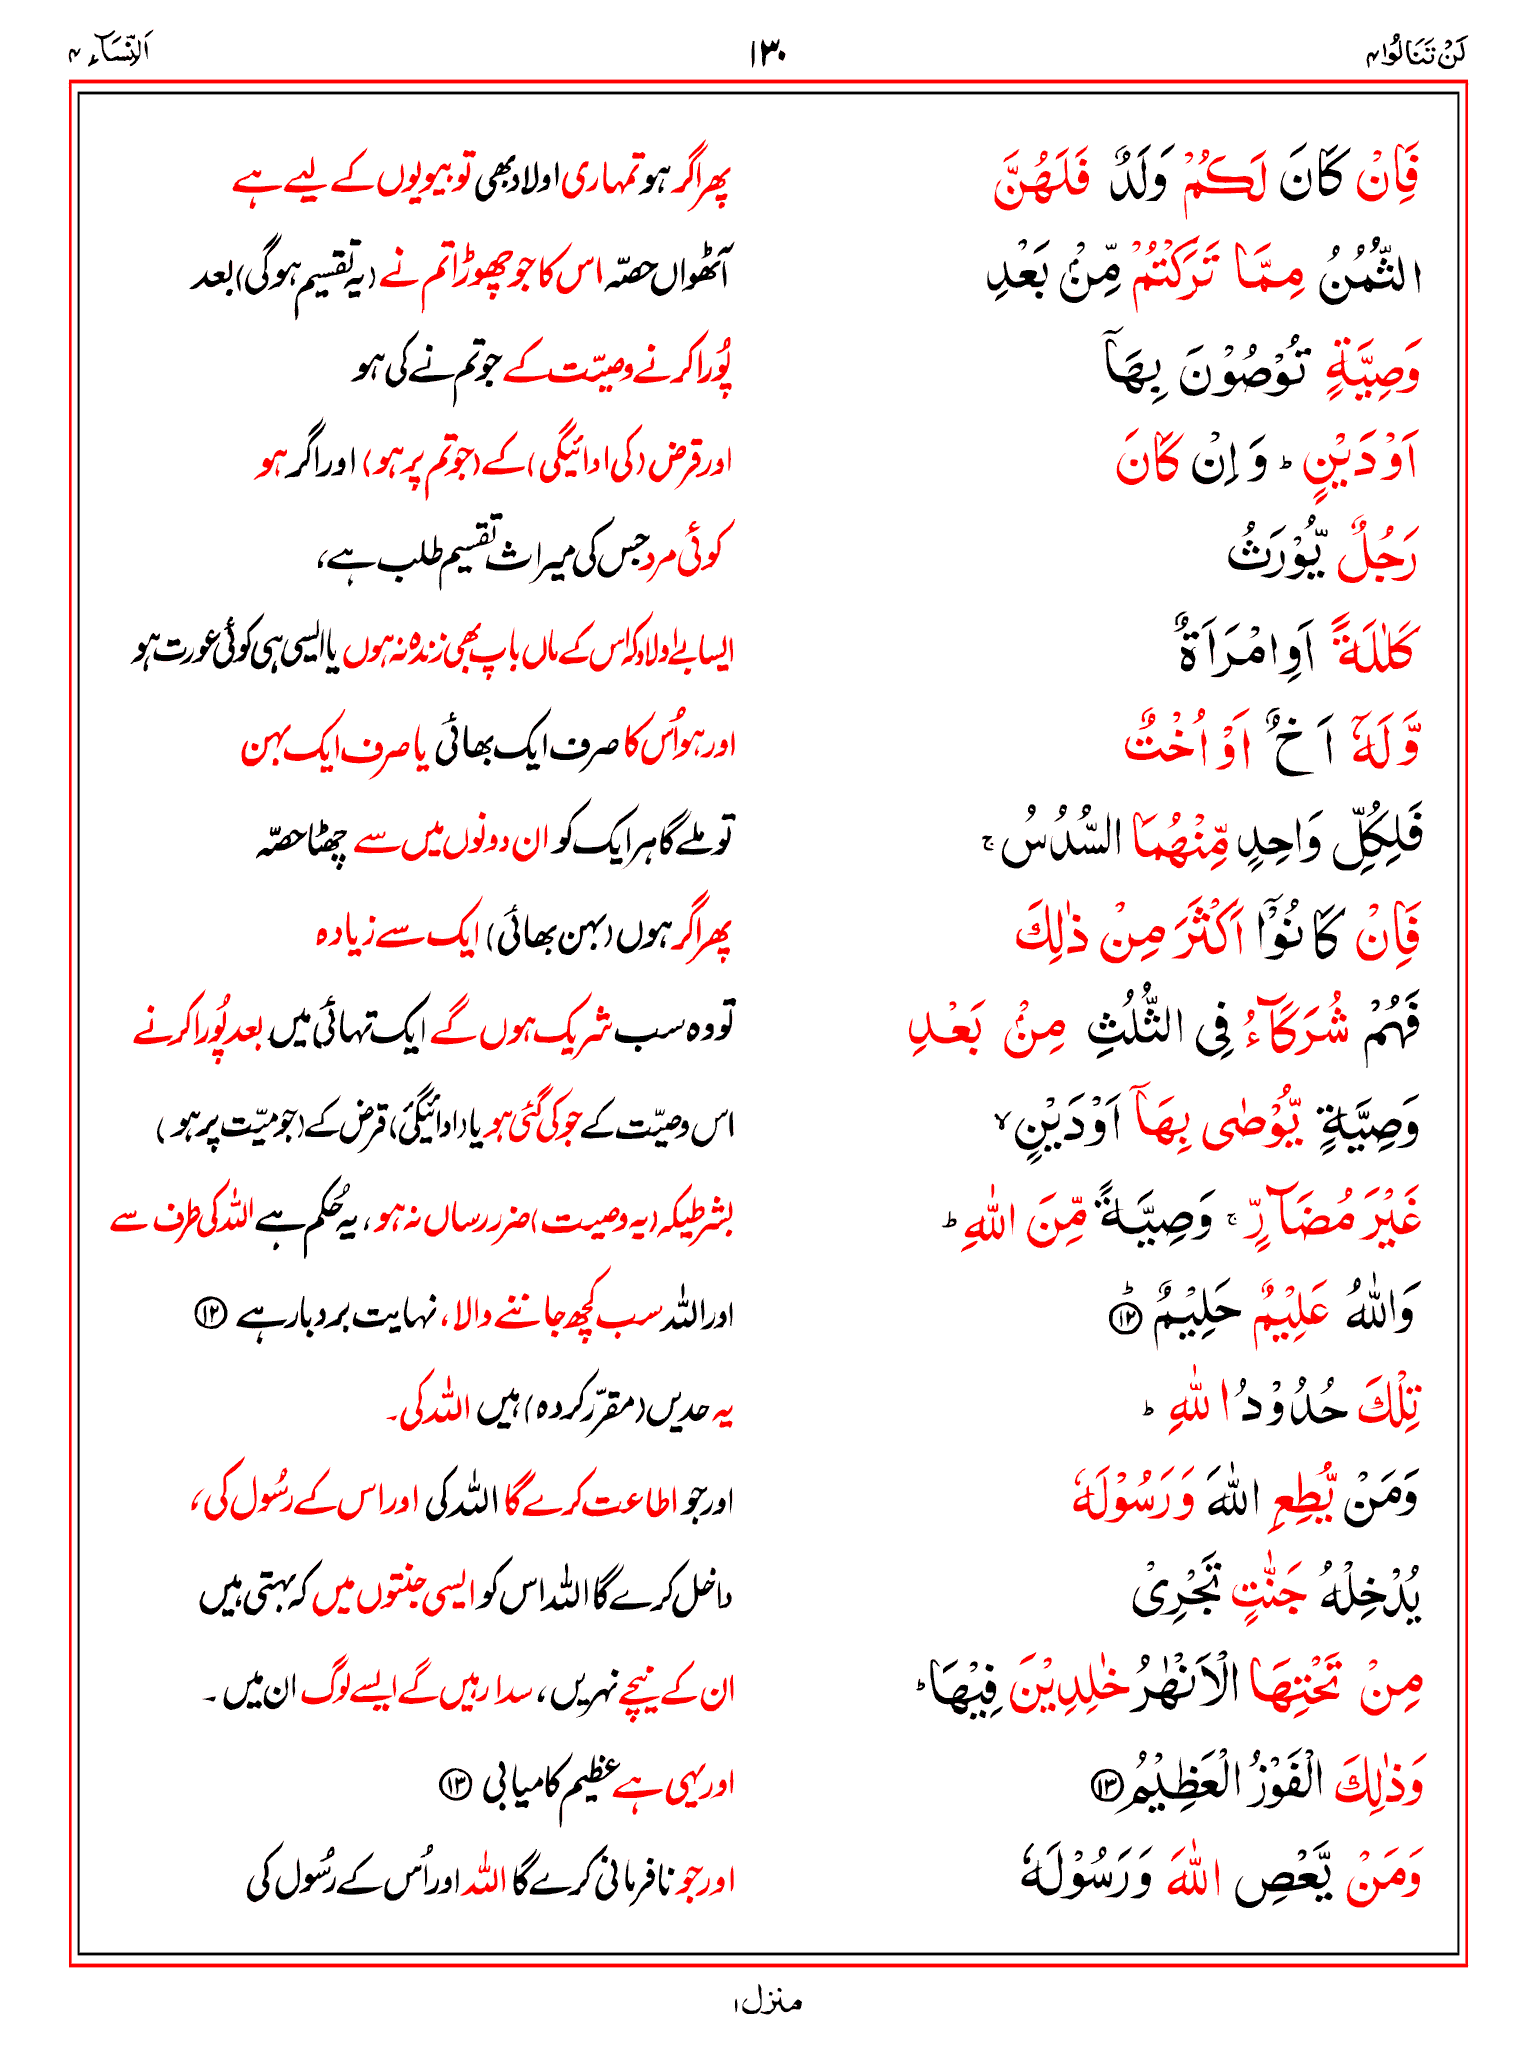 لَنْ تَنَالُوا ۴ ۱۳۰ اَلنِّسَآء ۴
فَاِنْ كَانَ لَكُمْ وَلَدٌ فَلَهُنَّ پھر اگر ہو تمہاری اولاد بھی تو بیویوں کے لیے ہے
الثُّمُنُ مِمَّا تَرَكْتُمْ مِّنْۢ بَعْدِ آٹھواں حصّہ اس کا جو چھوڑا تم نے (یہ تقسیم ہوگی) بعد
وَصِيَّةٍ تُوْصُوْنَ بِهَآ پُورا کرنے وصیّت کے جو تم نے کی ہو
اَوْ دَيْنٍ ؕ وَ اِنْ كَانَ اور قرض (کی ادائیگی) کے (جو تم پر ہو) اور اگر ہو
رَجُلٌ يُّوْرَثُ کوئی مرد جس کی میراث تقسیم طلب ہے،
كَلٰلَةً اَوِ امْرَاَةٌ ایسا بے اولاد کہ اس کے ماں باپ بھی زندہ نہ ہوں یا ایسی ہی کوئی عورت ہو
وَّلَهٗۤ اَخٌ اَوْ اُخْتٌ اور ہو اُس کا صرف ایک بھائی یا صرف ایک بہن
فَلِكُلِّ وَاحِدٍ مِّنْهُمَا السُّدُسُ ۚ تو ملے گا ہر ایک کو ان دونوں میں سے چھٹا حصّہ
فَاِنْ كَانُوْۤا اَكْثَرَ مِنْ ذٰلِكَ پھر اگر ہوں (بہن بھائی) ایک سے زیادہ
فَهُمْ شُرَكَآءُ فِى الثُّلُثِ مِنْۢ بَعْدِ تو وہ سب شریک ہوں گے ایک تہائی میں بعد پُورا کرنے
وَصِيَّةٍ يُّوْصٰى بِهَآ اَوْ دَيْنٍ ۙ اس وصیّت کے جو کی گئی ہو یا (ادائیگی) قرض کے (جو میّت پر ہو)
غَيْرَ مُضَآرٍّ ۚ وَصِيَّةً مِّنَ اللّٰهِ ؕ بشرطیکہ (یہ وصیت) ضرر رساں نہ ہو، یہ حُکم ہے اللہ کی طرف سے
وَاللّٰهُ عَلِيْمٌ حَلِيْمٌ ؕ ۱۲ اور اللہ سب کچھ جاننے والا، نہایت بردبار ہے ۱۲
تِلْكَ حُدُوْدُ اللّٰهِ ؕ یہ حدیں (مقرّر کردہ) ہیں اللہ کی۔
وَمَنْ يُّطِعِ اللّٰهَ وَرَسُوْلَهٗ اور جو اطاعت کرے گا اللہ کی اور اس کے رسُول کی،
يُدْخِلْهُ جَنّٰتٍ تَجْرِىْ داخل کرے گا اللہ اس کو ایسی جنتوں میں کہ بہتی ہیں
مِنْ تَحْتِهَا الْاَنْهٰرُ خٰلِدِيْنَ فِيْهَا ؕ ان کے نیچے نہریں، سدا رہیں گے ایسے لوگ ان میں۔
وَذٰلِكَ الْفَوْزُ الْعَظِيْمُ ۱۳ اور یہی ہے عظیم کامیابی ۱۳
وَمَنْ يَّعْصِ اللّٰهَ وَرَسُوْلَهٗ اور جو نافرمانی کرے گا اللہ اور اُس کے رسُول کی
منزل ۱